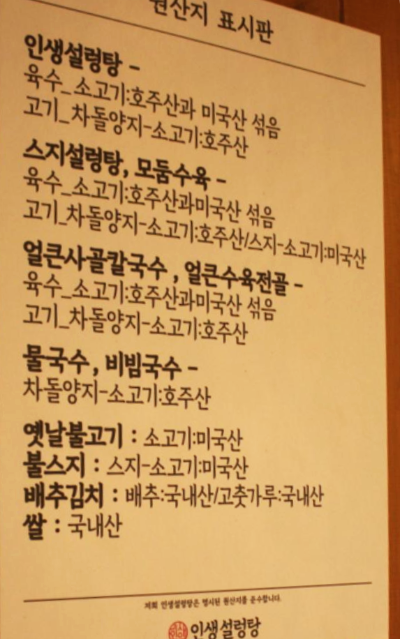 원산지 표시판
인생설렁탕 -
육수_소고기:호주산과 미국산 섞음
고기_차돌양지-소고기:호주산
스지설렁탕, 모둠수육 -
육수_소고기:호주산과미국산 섞음
고기_차돌양지-소고기:호주산/스지-소고기:미국산
얼큰사골칼국수 , 얼큰수육전골 -
육수_소고기:호주산과미국산 섞음
고기_차돌양지-소고기:호주산
물국수 , 비빔국수 -
차돌양지-소고기:호주산
옛날불고기 : 소고기:미국산
불스지 : 스지-소고기:미국산
배추김치 : 배추:국내산/고춧가루:국내산
쌀 : 국내산
저희 인생설렁탕은 명시된 원산지를 준수합니다.
인생설렁탕